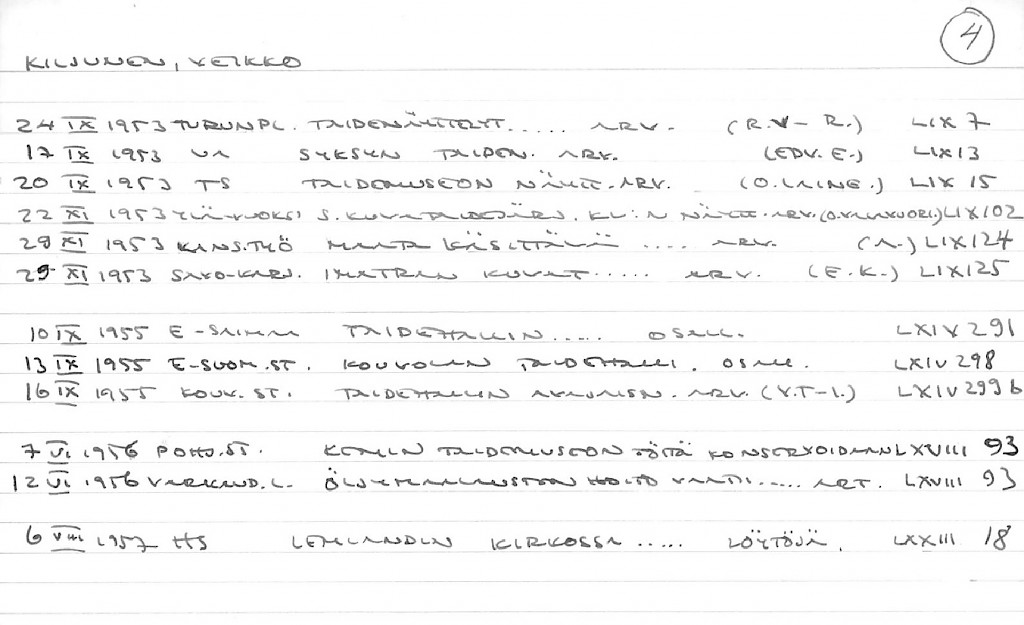 4
KILJUNEN, VEIKKO
24 IX 1953 TURUNPL. TAIDENÄYTTELYT..... ARV. (R.V-R.) LIX 7
17 IX 1953 UA SYKSYN TAIDEN. ARV. (EDV. E.) LIX 13
20 IX 1953 TS TAIDEMUSEON NÄYTT. ARV. (O. LAINE.) LIX 15
22 XI 1953 YLÄ-VUOKSI S. KUVATAIDEJÄRJ. KL:N NÄYTT. ARV. (O. VALAVUORI.) LIX 102
29 XI 1953 KANS.TYÖ MAATA KÄSITTÄVÄ .... ARV. (A.) LIX 124
29 XI 1953 SAVO-KARJ. IMATRAN KUVAT..... ARV. (E.K.) LIX 125
10 IX 1955 E-SAIMAA TAIDEHALLIN..... OSALL. LXIV 291
13 IX 1955 E-SUOM.ST. KOUVOLAN TAIDEHALLI. OSALL. LXIV 298
16 IX 1955 KOUV. ST. TAIDEHALLIN AVAJAISN. ARV. (Y.T-I.) LXIV 299 b
7 VI 1956 POHJ.ST. KEMIN TAIDEMUSEON TÖITÄ KONSERVOIDAAN LXVIII 93
12 VI 1956 VARKAUD.L. ÖLJYMAALAUSTEN HOITO VAATII..... ART. LXVIII 93
6 VIII 1957 HS LEMLANDIN KIRKOSSA ..... LÖYTÖJÄ. LXXIII 18